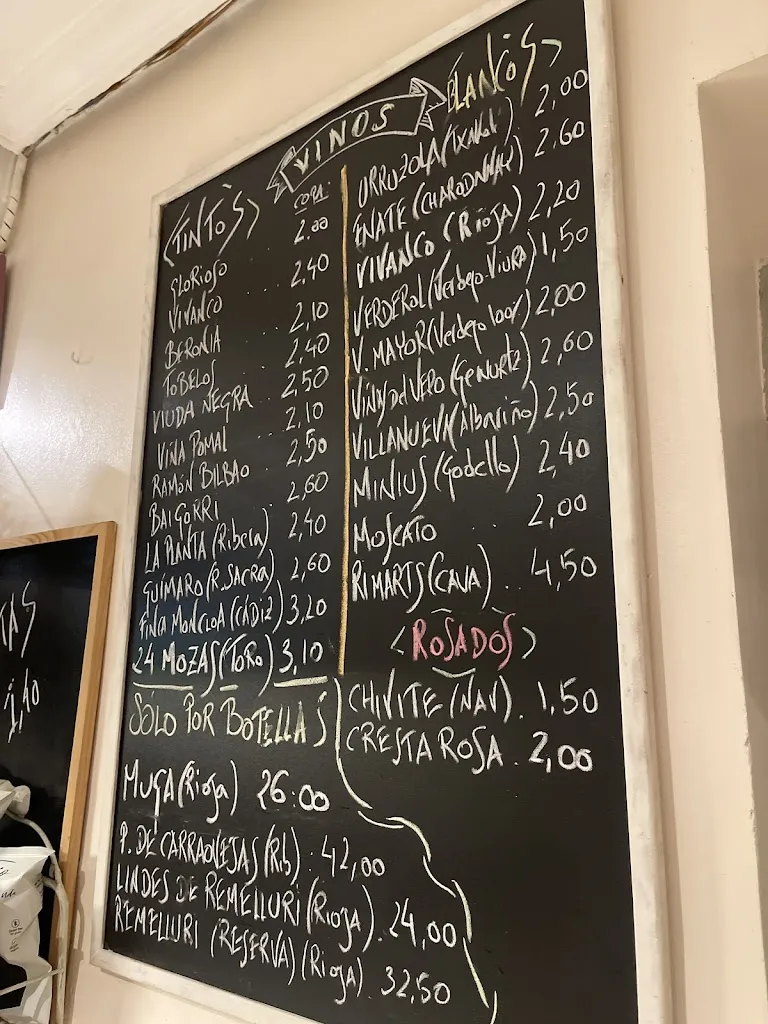 VINOS
<TINTOS>
COPA:
GLORIOSO 2.00
VIVANCO .. 2,40
BERONIA .. 2,10
TOBELOS .. 2,40
VIUDA NEGRA . 2,50
VIÑA POMAL .. 2,10
RAMÓN BILBAO . 2,50
BAIGORRI .. 2,60
LA PLANTA (Ribera) 2,40
GUÍMARO (R. SACRA) 2,60
FINCA MONCLOA (CÁDIZ) 3,20
24 MOZAS (TORO) 3,10
BLANCOS>
URRUZOLA (TXAKOLI) 2,00
ENATE (CHARDONNAY) 2,60
VIVANCO (RIOJA) 2,20
VERDEROL (Verdejo-Viura) 1,50
V. MAYOR (Verdejo 100%) 2,00
VIÑAS del VERO (Gewurtz) 2,60
VILLANUEVA (Albariño) 2,50
MINIUS (Godello) 2,40
MOSCATO .. 2,00
RIMARTS (CAVA) .. 4,50
<ROSADOS>
CHIVITE (NAV). 1,50
CRESTA ROSA . 2,00
SOLO POR BOTELLAS
MUGA (Rioja) 26.00
P. DE CARRAOVEJAS (Rib) . 42,00
LINDES DE REMELLURI (RIOJA). 24,00
REMELLURI (RESERVA) (RIOJA) . 32,50
TAS
1,40